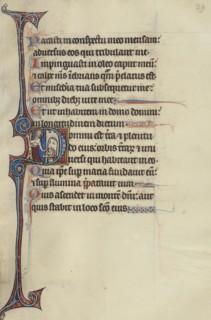 Parasti in conspectu meo mensam:
adversus eos qui tribulant me.
Impinguasti in oleo caput meū:
et calix ms inebrians qm̄ pclarus est
Et miscdia tua subsequetur me:
omnibȝ diebȝ vite mee.
Et ut inhabitem in domo domini:
in longitudinem dierum
Domini est t̄ra et plenitu
do eius: orbis t̄rarȝ et uni
versi qui habitant in eo.
Quia ip̄e sup maria fundavit eū:
et sup flumina p̄paravit eum
Quis ascendet in montē dn̄i: aut
quis stabit in loco sc̄o eius